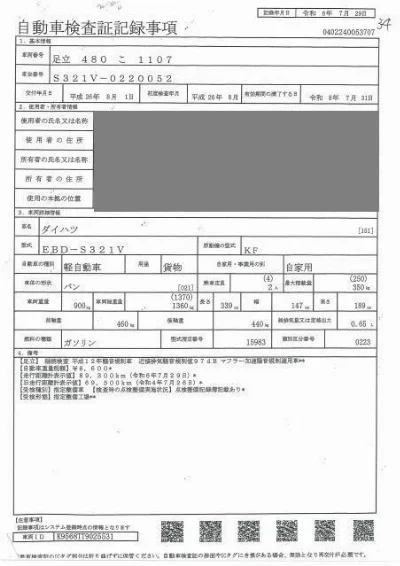 自動車検査証記録事項
記録年月日 令和 6年 7月 29日
0402240053707
34
1. 基本情報
車両番号 足立 480 こ 1107
車台番号 S321V-0220052
交付年月日 平成 26年 8月 1日 初度検査年月 平成 26年 8月 有効期間の満了する日 令和 8年 7月 31日
2. 使用者・所有者情報
使用者の氏名又は名称
使用者の住所
所有者の氏名又は名称
所有者の住所
使用の本拠の位置
3. 車両詳細情報
車名 ダイハツ [161]
型式 EBD-S321V 原動機の型式 KF
自動車の種別 軽自動車 用途 貨物 自家用・事業用の別 自家用
車体の形状 バン [021] 乗車定員 (4) 2人 最大積載量 (250) 350kg
車両重量 900kg 車両総重量 (1370) 1360kg 長さ 339cm 幅 147cm 高さ 189cm
前軸重 460kg 後軸重 440kg 総排気量又は定格出力 0.65L
燃料の種類 ガソリン 型式指定番号 15983 類別区分番号 0223
4. 備考
【足立】 継続検査 平成12年騒音規制車 近接排気騒音規制値97dB マフラー加速騒音規制適用車**
【自動車重量税額】 ¥6,600*
【走行距離計表示値】 89,300km (令和6年7月29日)*
【旧走行距離計表示値】 69,500km (令和4年7月26日)*
【受検種別】 指定整備車 【検査時の点検整備実施状況】 点検整備記録簿記載あり*
【受検形態】 指定整備工場**
【注意事項】
記録事項はシステム登録時点の情報となります
車両ID K9568IT9025531